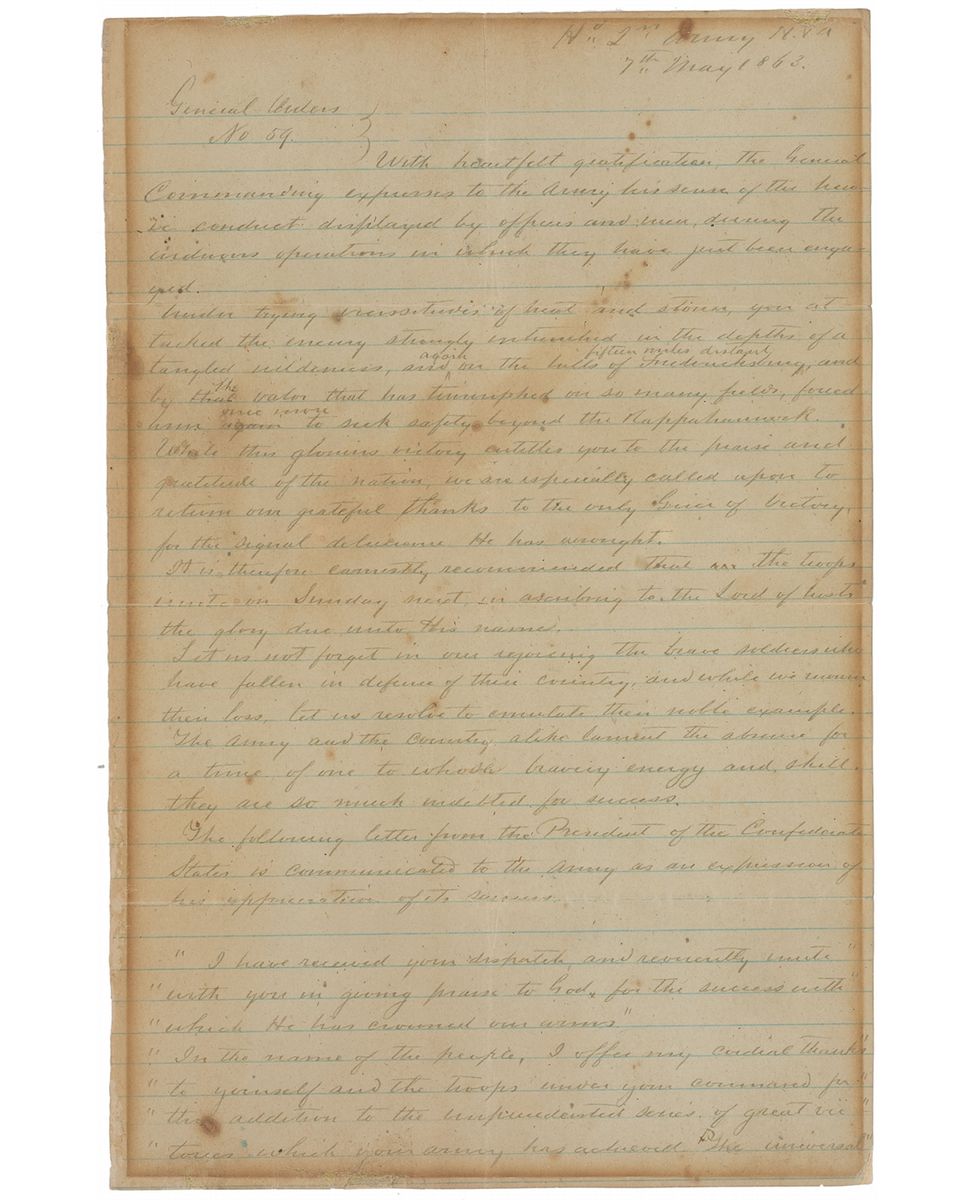 Hd Qrs Army N. Va
7th May 1863.
General Orders
No 59.
With heartfelt gratification, the General
Commanding expresses to the Army his sense of the hero-
ic conduct displayed by officers and men, during the
arduous operations in which they have just been enga-
ged.
Under trying vicissitudes of heat and storm, you at
tacked the enemy strongly intrenched in the depths of a
again fifteen miles distant,
tangled wilderness, and on the hills of Fredericksburg, and
the
by that valor that has triumphed on so many fields, forced
once more
him again to seek safety beyond the Rappahannock.
While this glorious victory entitles you to the praise and
gratitude of the nation, we are especially called upon to
return our grateful thanks to the only Giver of Victory,
for the signal deliverence He has wrought.
It is, therefore earnestly recommended that the troops
unite on Sunday next in ascribing to the Lord of hosts
the glory due unto His name.
Let us not forget in our rejoicing the brave soldiers who
have fallen in defence of their country, and while we mourn
their loss, let us resolve to emulate their noble example.
The Army and the Country alike lament the absence for
a time of one to whose bravery energy and skill
they are so much indebted for success.
The following letter from the President of the Confederate
States is communicated to the Army as an expression of
his appreciation of its success.
" I have received your dispatch, and reverently unite "
" with you in giving praise to God, for the success with "
" which He has crowned our arms "
" In the name of the people, I offer my cordial thanks "
" to yourself and the troops under your command for "
" this addition to the unprecedented series of great vic "
" tories which your army has achieved The universal "